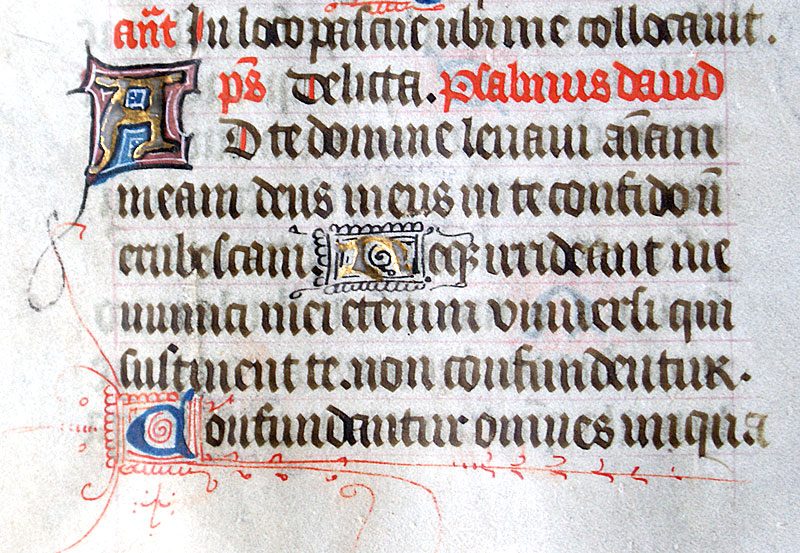 añt In loco pascue ubi me collocavit.
ps̄ Delicta. Psalmus david
AD te domine levavi aīam
meam deus meus in te confido nō
erubescam Necqꝫ irrideant me
inimici mei etenim vniversi qui
sustinent te. non confundentur.
Confundantur omnes iniqua